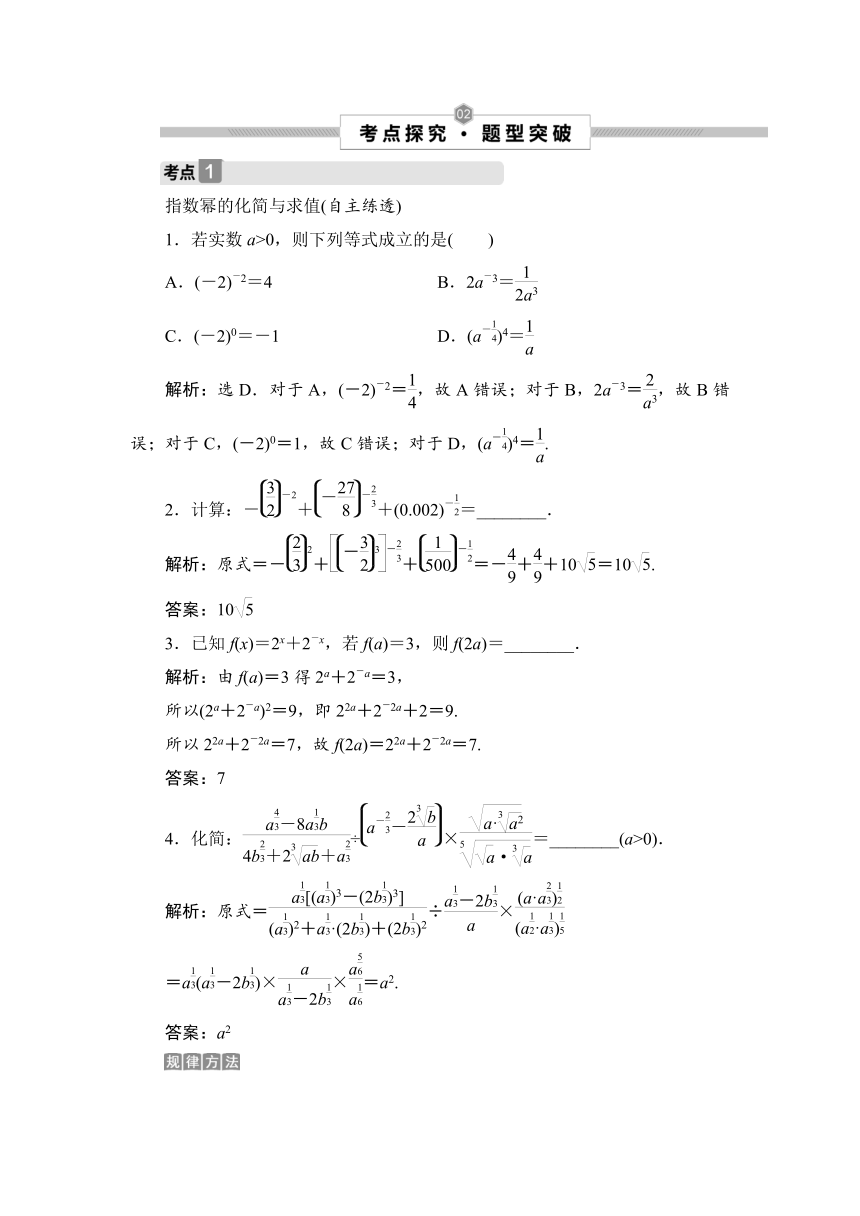 02
考点探究·题型突破
考点1
指数幂的化简与求值(自主练透)
1．若实数 a>0，则下列等式成立的是(　　)
A．(－2)⁻²＝4　　B．2a⁻³＝\frac{1}{2a³}
C．(－2)⁰＝－1　　D．(a^{-\frac{1}{4}})⁴＝\frac{1}{a}
解析：选 D．对于 A，(－2)⁻²＝\frac{1}{4}，故 A 错误；对于 B，2a⁻³＝\frac{2}{a³}，故 B 错
误；对于 C，(－2)⁰＝1，故 C 错误；对于 D，(a^{-\frac{1}{4}})⁴＝\frac{1}{a}.
2．计算：－(\frac{3}{2})^{-2}＋(－\frac{27}{8})^{-\frac{2}{3}}＋(0.002)^{-\frac{1}{2}}＝________．
解析：原式＝－(\frac{2}{3})^{2}＋[(－\frac{3}{2})^{3}]^{-\frac{2}{3}}＋(\frac{1}{500})^{-\frac{1}{2}}＝－\frac{4}{9}＋\frac{4}{9}＋10\sqrt{5}＝10\sqrt{5}.
答案：10\sqrt{5}
3．已知 f(x)＝2^{x}＋2^{-x}，若 f(a)＝3，则 f(2a)＝________．
解析：由 f(a)＝3 得 2^{a}＋2^{-a}＝3，
所以(2^{a}＋2^{-a})²＝9，即 2^{2a}＋2^{-2a}＋2＝9.
所以 2^{2a}＋2^{-2a}＝7，故 f(2a)＝2^{2a}＋2^{-2a}＝7.
答案：7
4．化简：\frac{a^{\frac{4}{3}}－8a^{\frac{1}{3}}b}{4b^{\frac{2}{3}}＋2\sqrt[3]{ab}＋a^{\frac{2}{3}}}÷(a^{-\frac{2}{3}}－\frac{2\sqrt[3]{b}}{a})×\frac{\sqrt{a·\sqrt[3]{a²}}}{\sqrt[5]{\sqrt{a}·\sqrt[3]{a}}}＝________(a>0)．
解析：原式＝\frac{a^{\frac{1}{3}}[(a^{\frac{1}{3}})³－(2b^{\frac{1}{3}})³]}{(a^{\frac{1}{3}})²＋a^{\frac{1}{3}}·(2b^{\frac{1}{3}})＋(2b^{\frac{1}{3}})²}÷\frac{a^{\frac{1}{3}}－2b^{\frac{1}{3}}}{a}×\frac{(a·a^{\frac{2}{3}})^{\frac{1}{2}}}{(a^{\frac{1}{2}}·a^{\frac{1}{3}})^{\frac{1}{5}}}
＝a^{\frac{1}{3}}(a^{\frac{1}{3}}－2b^{\frac{1}{3}})×\frac{a}{a^{\frac{1}{3}}－2b^{\frac{1}{3}}}×\frac{a^{\frac{5}{6}}}{a^{\frac{1}{6}}}＝a².
答案：a²
规律方法